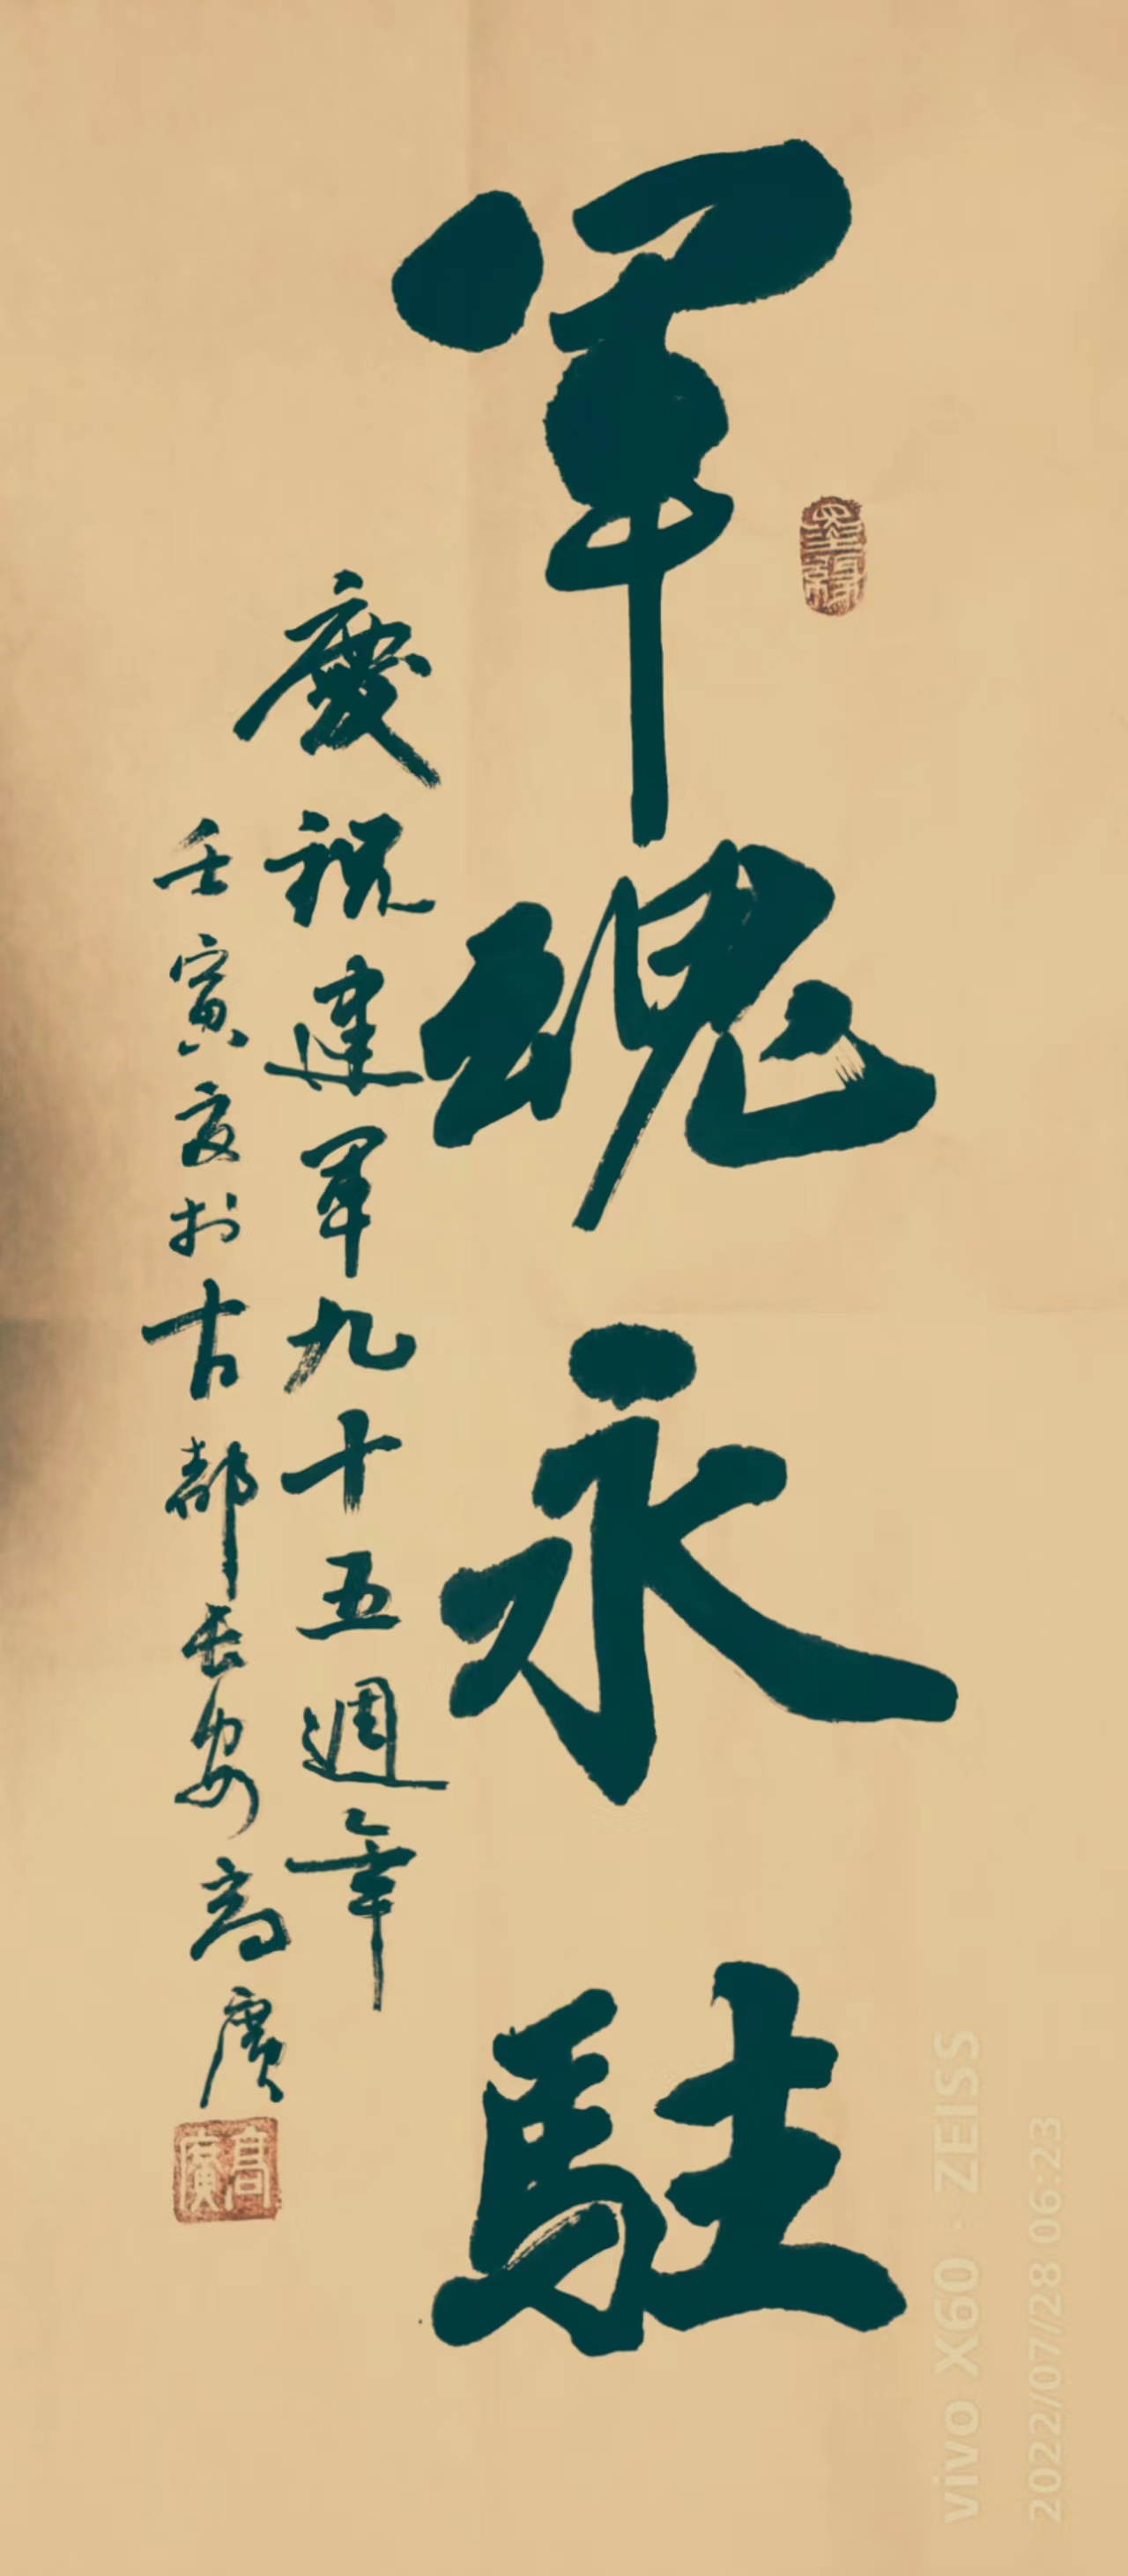 軍魂永駐
慶祝建军九十五週年
壬寅夏於古都長安高廣
墨緣
高廣
vivo X60 · ZEISS
2022/07/28 06:23